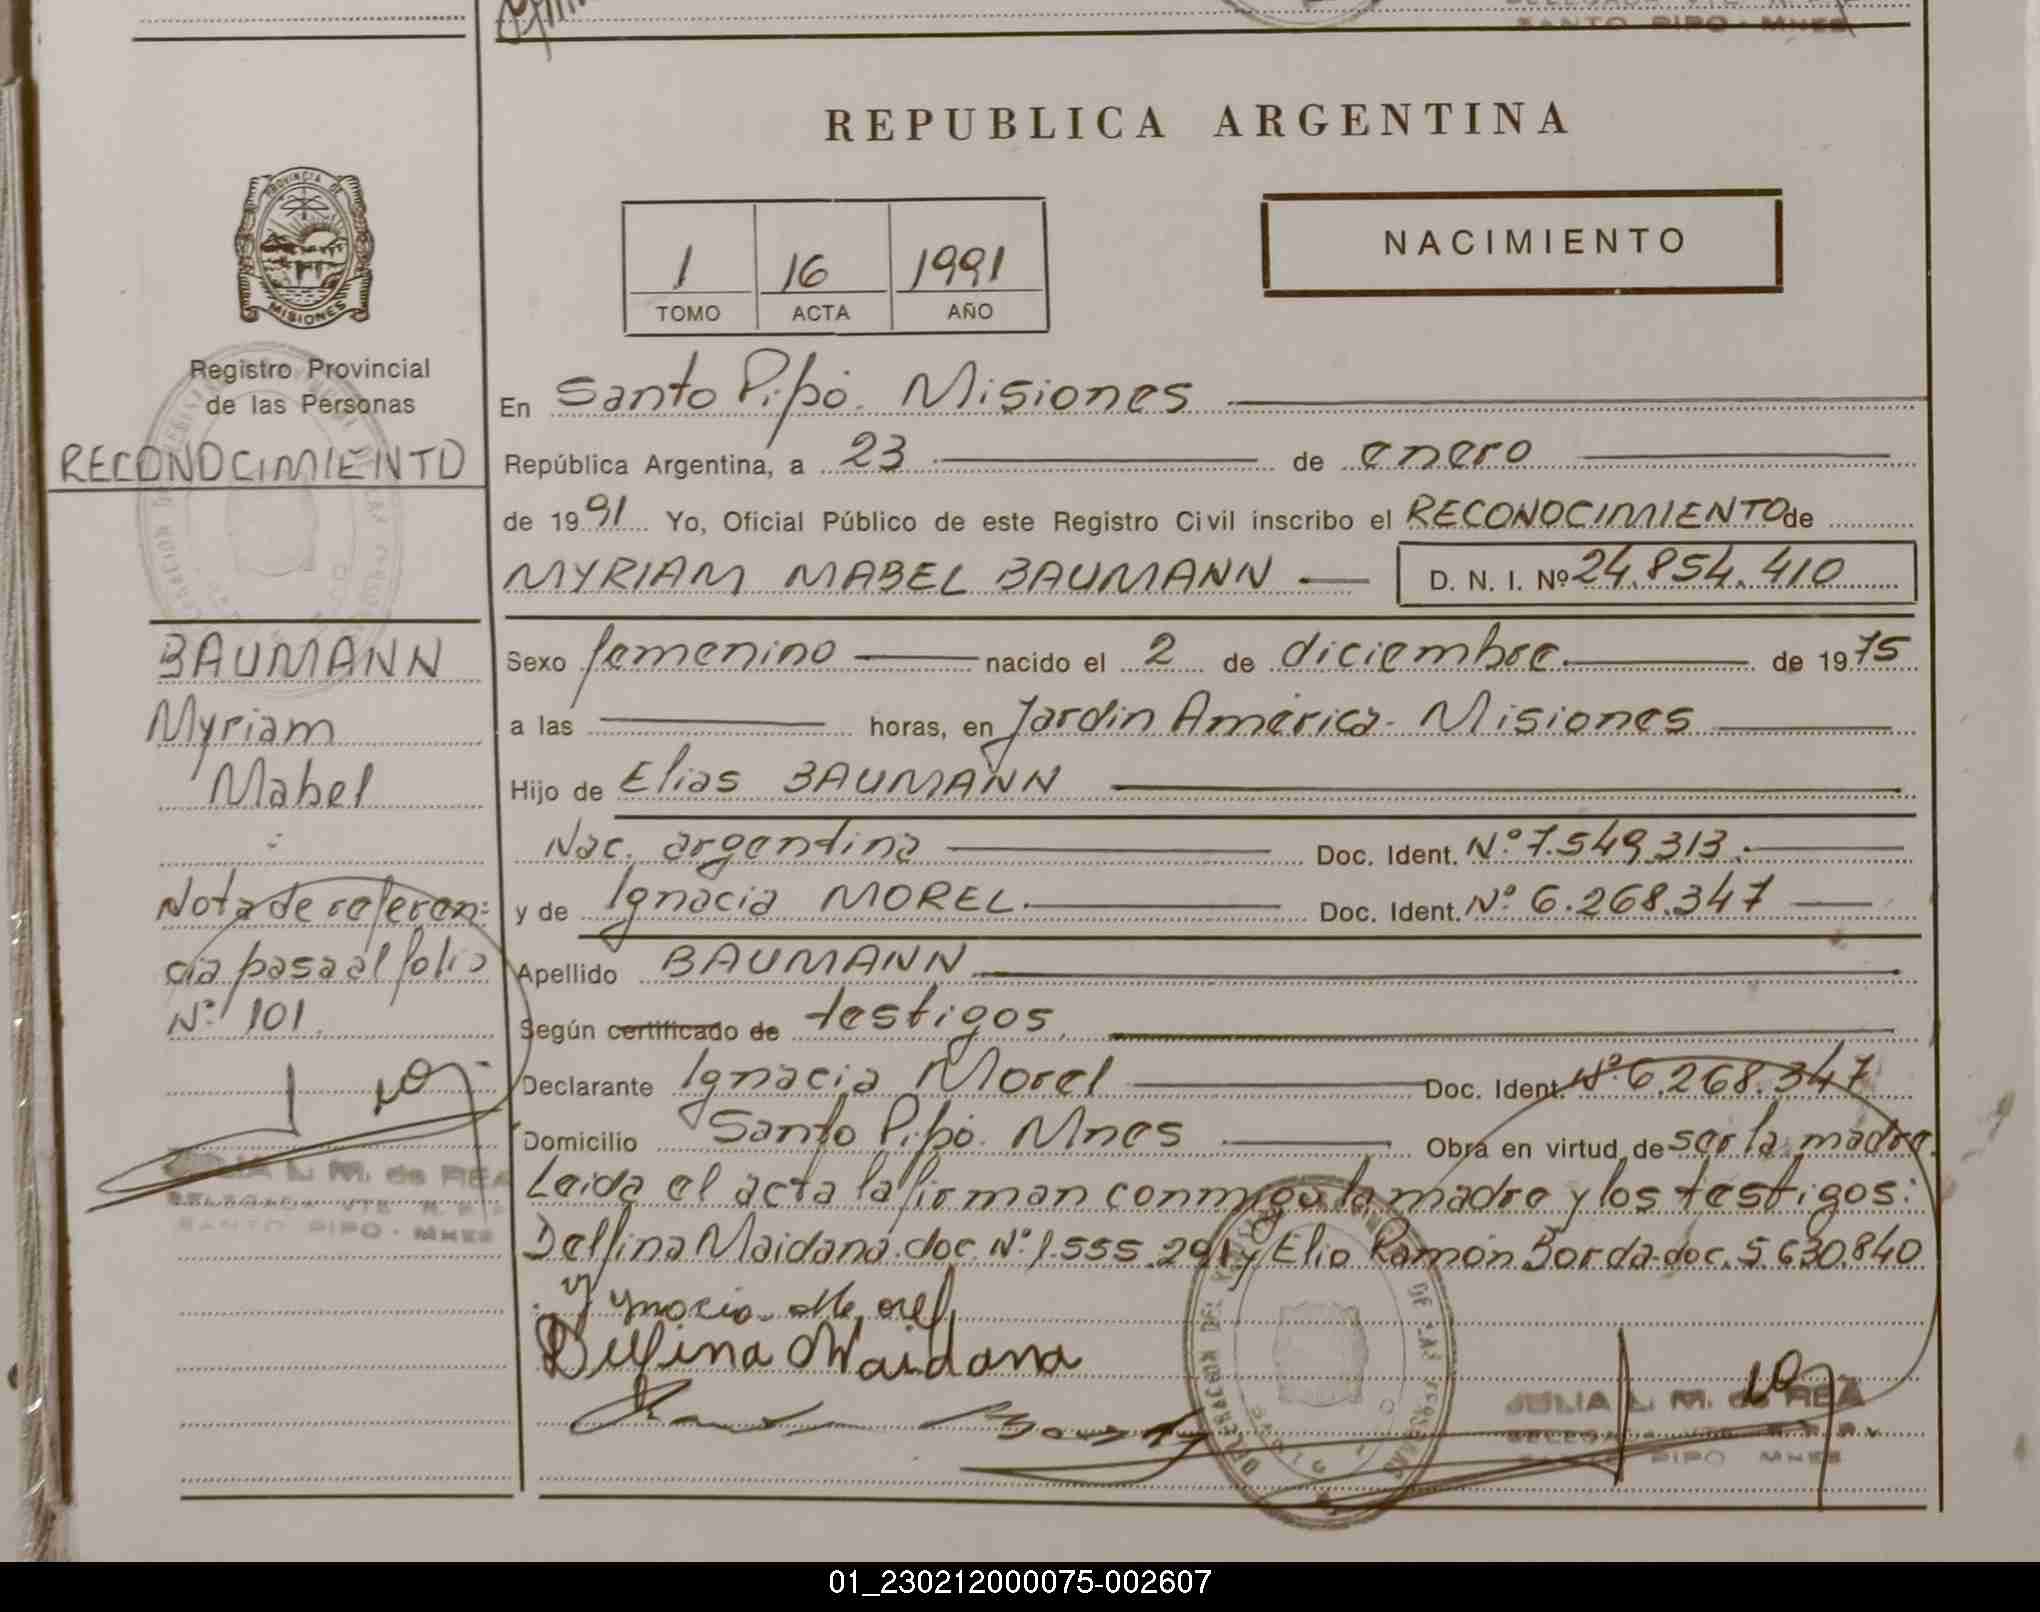 SANTO PIPO - MNES
REPUBLICA ARGENTINA
PROVINCIA DE
MISIONES
1 16 1991
TOMO ACTA AÑO
NACIMIENTO
Registro Provincial
de las Personas
RECONOCIMIENTO
En Santo Pipó. Misiones
República Argentina, a 23 de enero
de 1991 Yo, Oficial Público de este Registro Civil inscribo el RECONOCIMIENTO de
MYRIAM MABEL BAUMANN D. N. I. Nº 24.854.410
Sexo femenino nacido el 2 de diciembre de 1975
a las horas, en Jardin América- Misiones
Hijo de Elias BAUMANN
Nac. argentina Doc. Ident. Nº 7.549.313.
y de Ignacia MOREL Doc. Ident. Nº 6.268.347
Apellido BAUMANN
Según certificado de testigos
Declarante Ignacia Morel Doc. Ident. Nº 6.268.347
Domicilio Santo Pipó. Mnes Obra en virtud de ser la madre.
Leida el acta la firman conmigo la madre y los testigos:
Delfina Maidana. doc. Nº 1.555.291 y Elio Ramón Borda-doc. 5.630.840
Ygnacia Morel
Delfina Maidana
JULIA L. M. de REA
DELEGADA VTE. R. P. P.
SANTO PIPO - MNES
BAUMANN
Myriam
Mabel
Nota de referen=
cia pasa al folio
Nº 101.
JULIA L. M. de REA
DELEGADA VTE. R. P. P.
SANTO PIPO - MNES
01_230212000075-002607